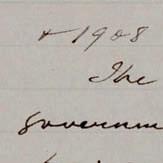 + 1908
The
governm